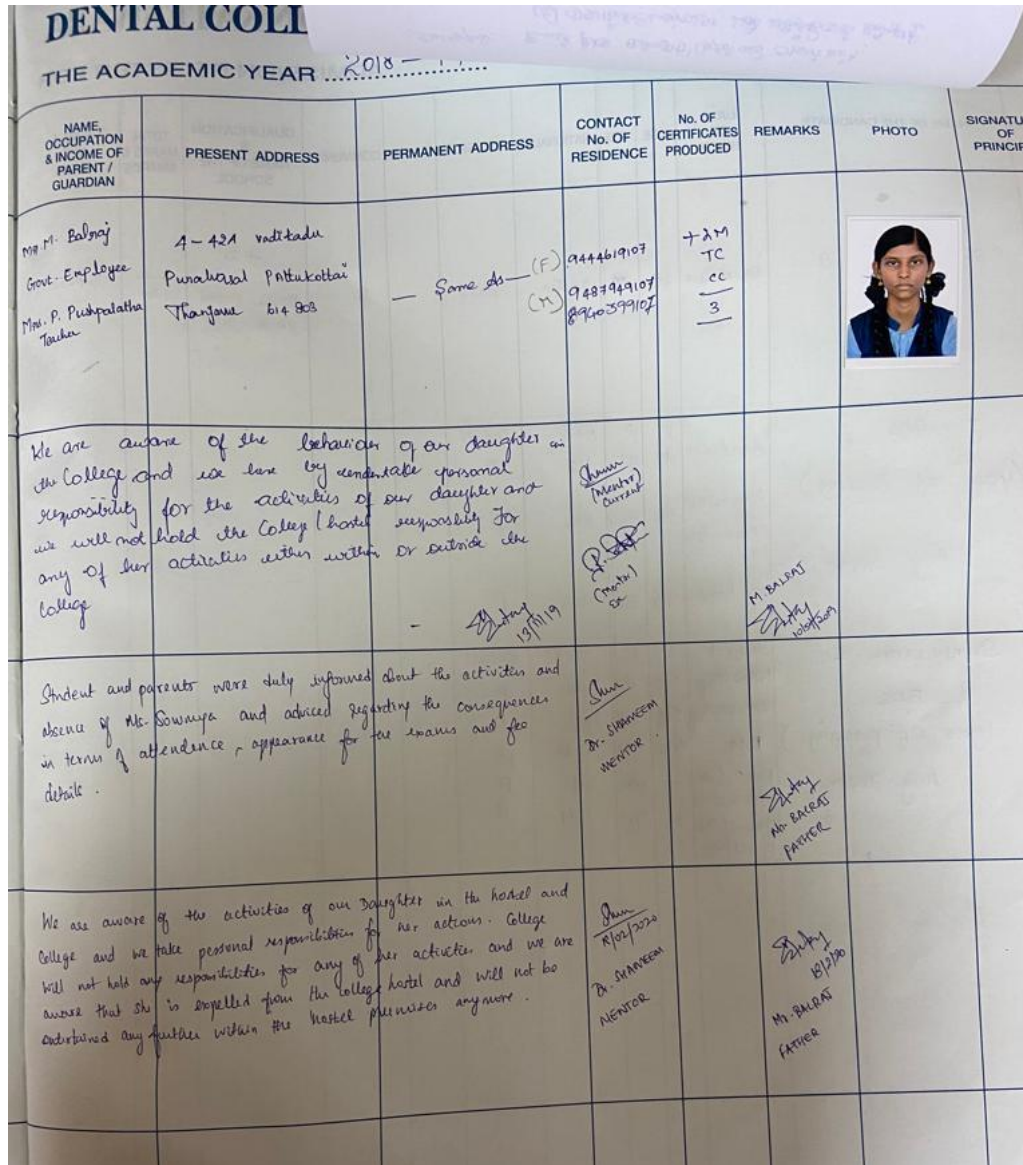 DENTAL COLL
THE ACADEMIC YEAR 2018 -
NAME, OCCUPATION & INCOME OF PARENT / GUARDIAN
PRESENT ADDRESS
PERMANENT ADDRESS
CONTACT No. OF RESIDENCE
No. OF CERTIFICATES PRODUCED
REMARKS
PHOTO
SIGNATU OF PRINCIP
Mr. M. Balraj
Govt. Employee
Mrs. P. Pushpalatha
Teacher
4-42A Vadikadu
Punalvasal Pattukottai
614 803
Same As
(F) 9444619107
(M) 9487949107
8940599107
+2M
TC
CC
3
We are aware of the behaviour of our daughter in
the College and we here by undertake personal
responsibility for the activities of our daughter and
we will not hold the College / hostel for
any of her activities either within or outside the
College
13/11/19
(Mentor)
Current
(Mentor)
M. BALRAJ
Student and parents were duly informed about the activities and
absence of Ms. Sowmya and adviced regarding the consequences
in terms of attendence, appearance for the exams and fee
details.
Dr. SHAMEEM
MENTOR
Mr. BALRAJ
FATHER
We are aware of the activities of our Daughter in the hostel and
College and we take personal responsibilities for her actions. College
will not hold any responsibilities for any of her activities and we are
aware that she is expelled from the college hostel and will not be
entertained any further within the hostel premises anymore.
18/02/2020
Dr. SHAMEEM
MENTOR
18/2/20
Mr. BALRAJ
FATHER